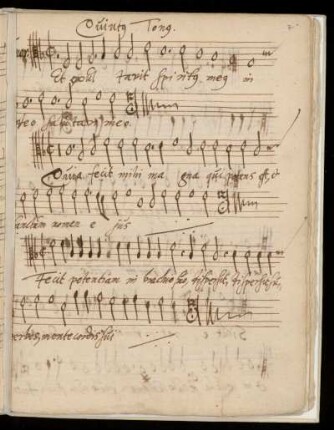 Quintus Tonus.
Et exultavit spiritus meus in
deo salutari meo
Quia fecit mihi magna qui potens est, et
sanctum nomen ejus
Fecit potentiam in brachio suo dispersit, dispersit,
mente cordis sui